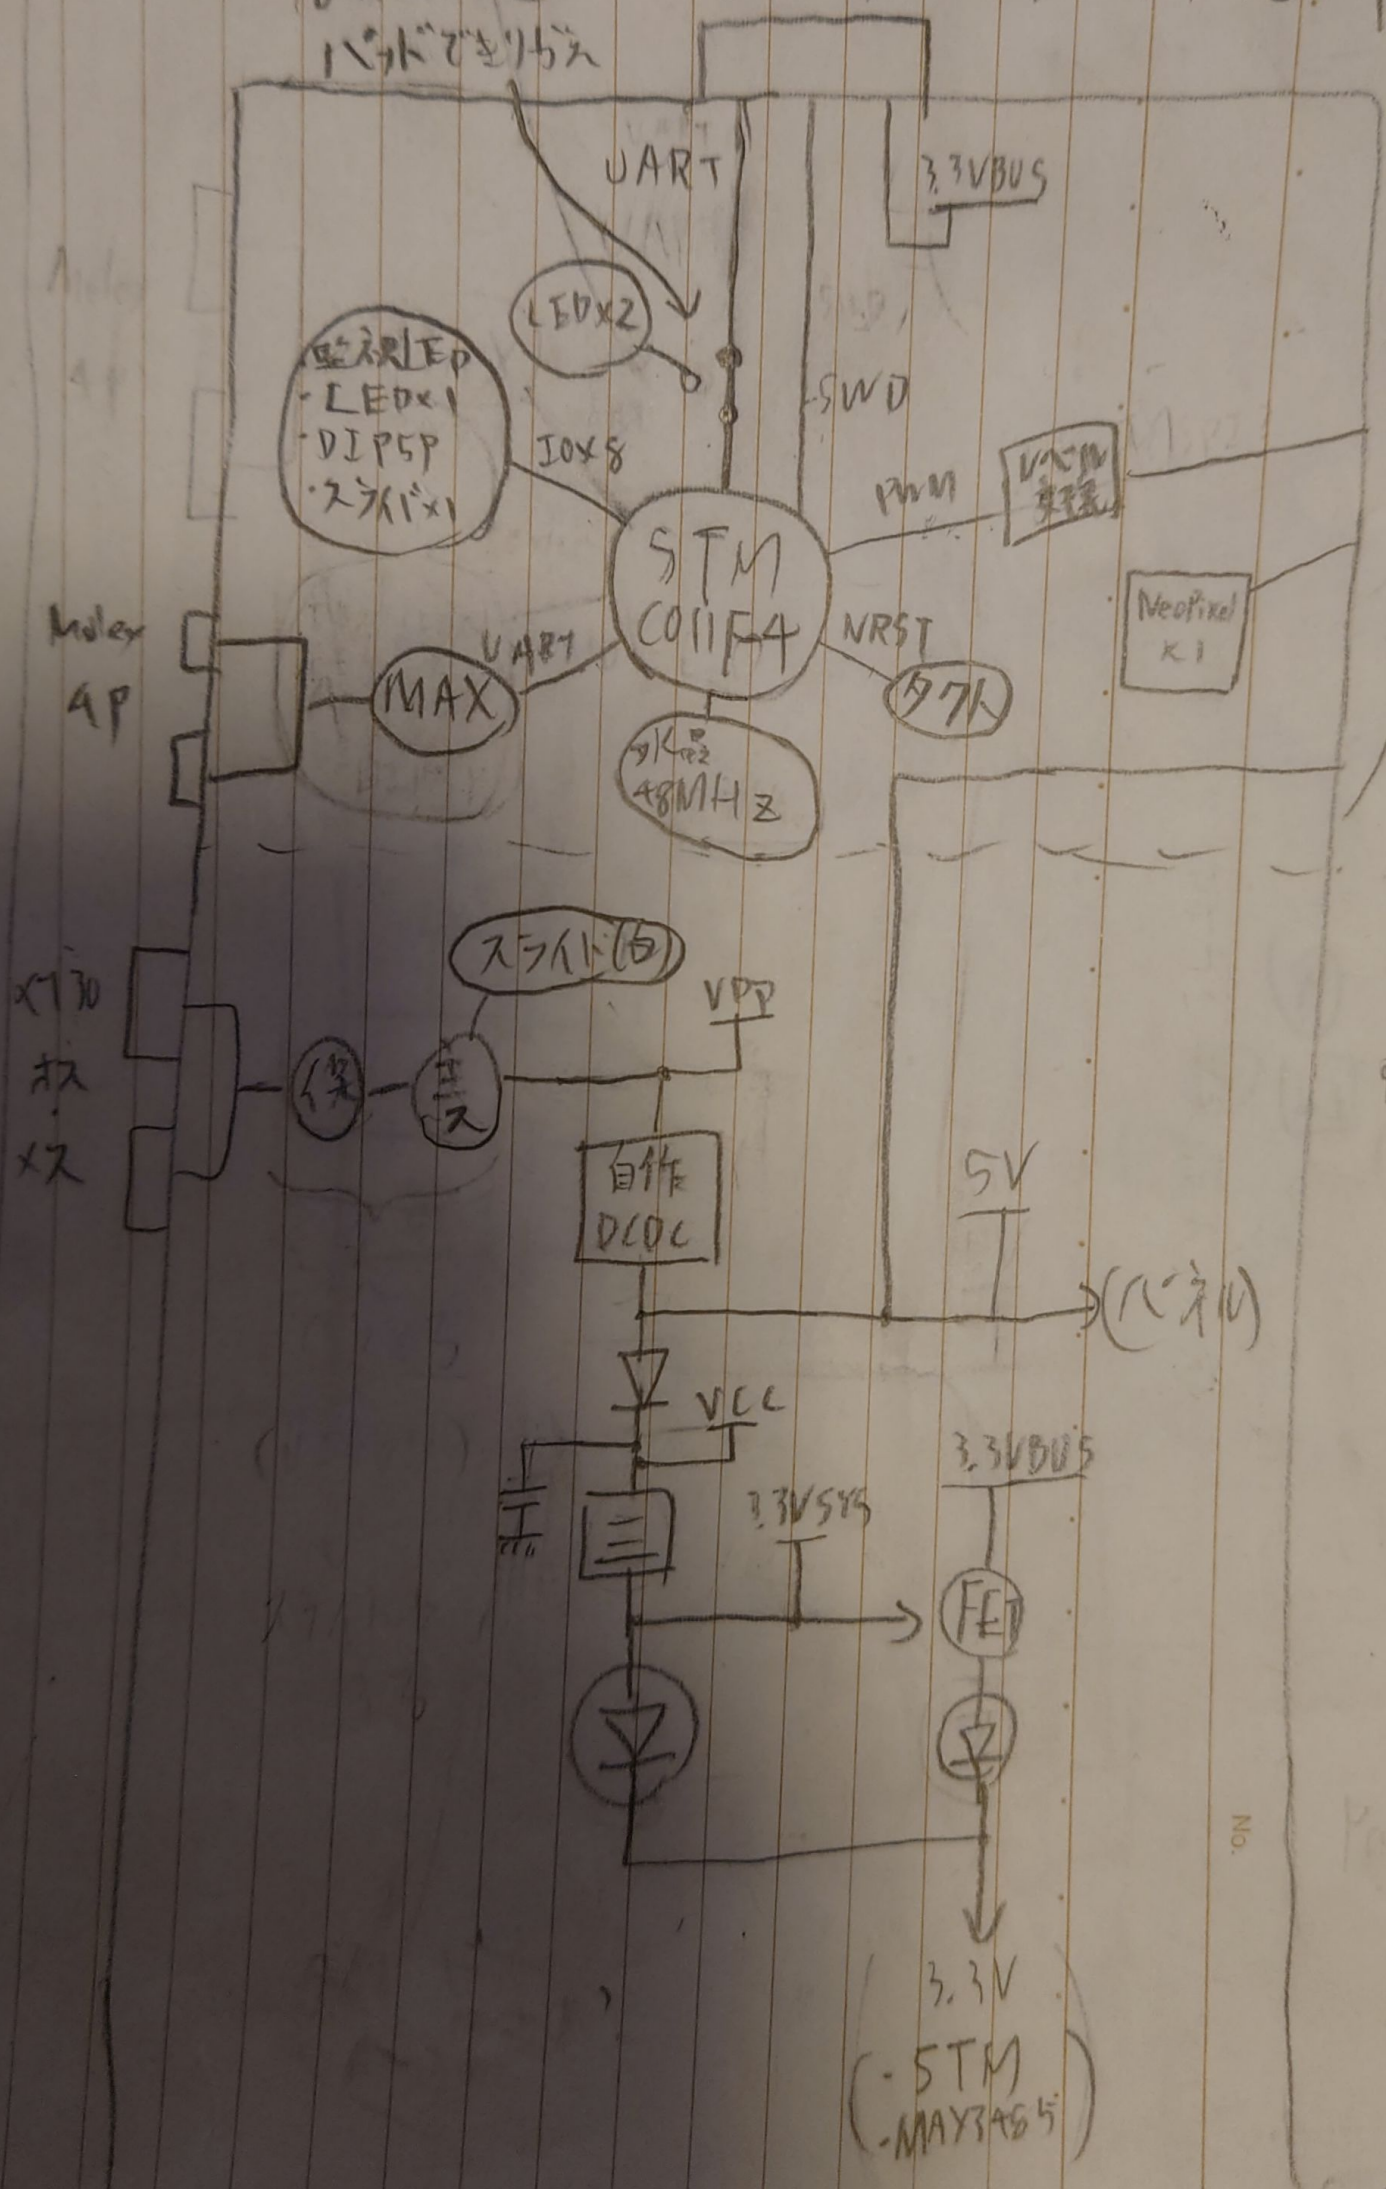 パッドできりかえ
UART
3.3VBUS
LEDx2
監視LED
・LEDx1
・DIP5P
・スライドx1
IOx8
SWD
PWM
レベル
変換
STM
C011F4
NeoPixel
x1
Molex
4P
UART
MAX
NRST
タクト
水晶
48MHz
スライド(白)
XT30
オス
・
メス
VPP
保
エス
自作
DCDC
5V
(パネル)
VCC
3.3VBUS
3.3VSYS
FET
No.
3.3V
・STM
・MAX3485